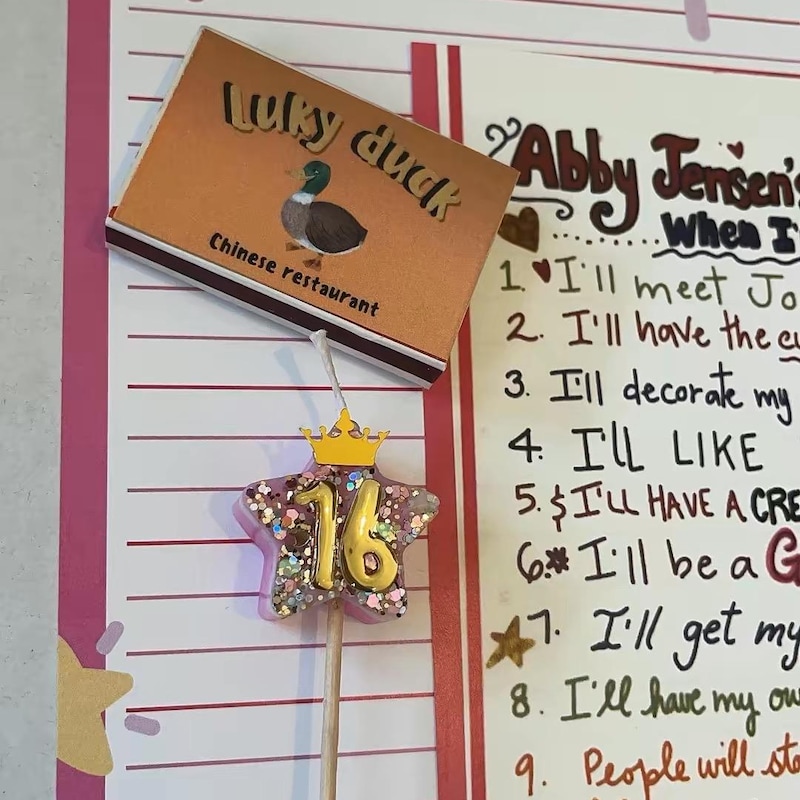 Luky duck
Chinese restaurant
16
Abby Jensen's
When I
1. I'll meet Jo
2. I'll have the
3. I'll decorate my
4. I'll LIKE
5. $ I'LL HAVE A CRE
6. I'll be a G
7. I'll get my
8. I'll have my ow
9. People will ste